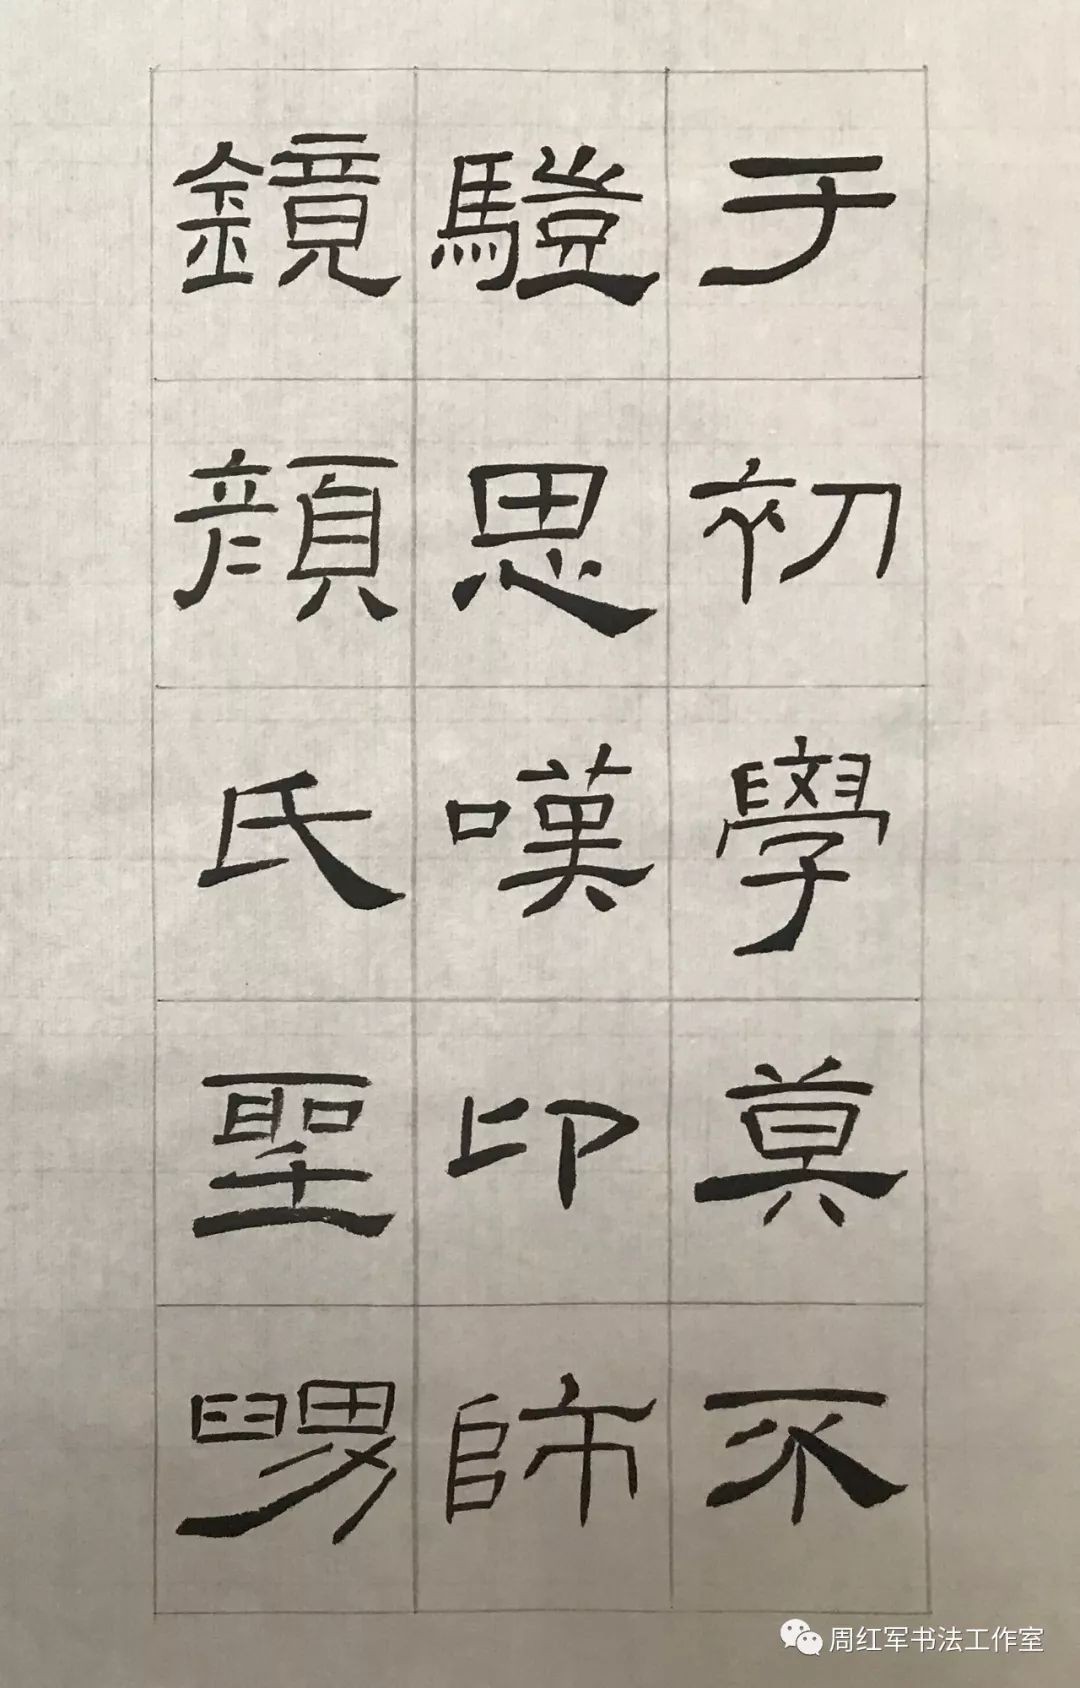 于初學莫不
驡思嘆卬師
鏡顏氏聖舅
周红军书法工作室